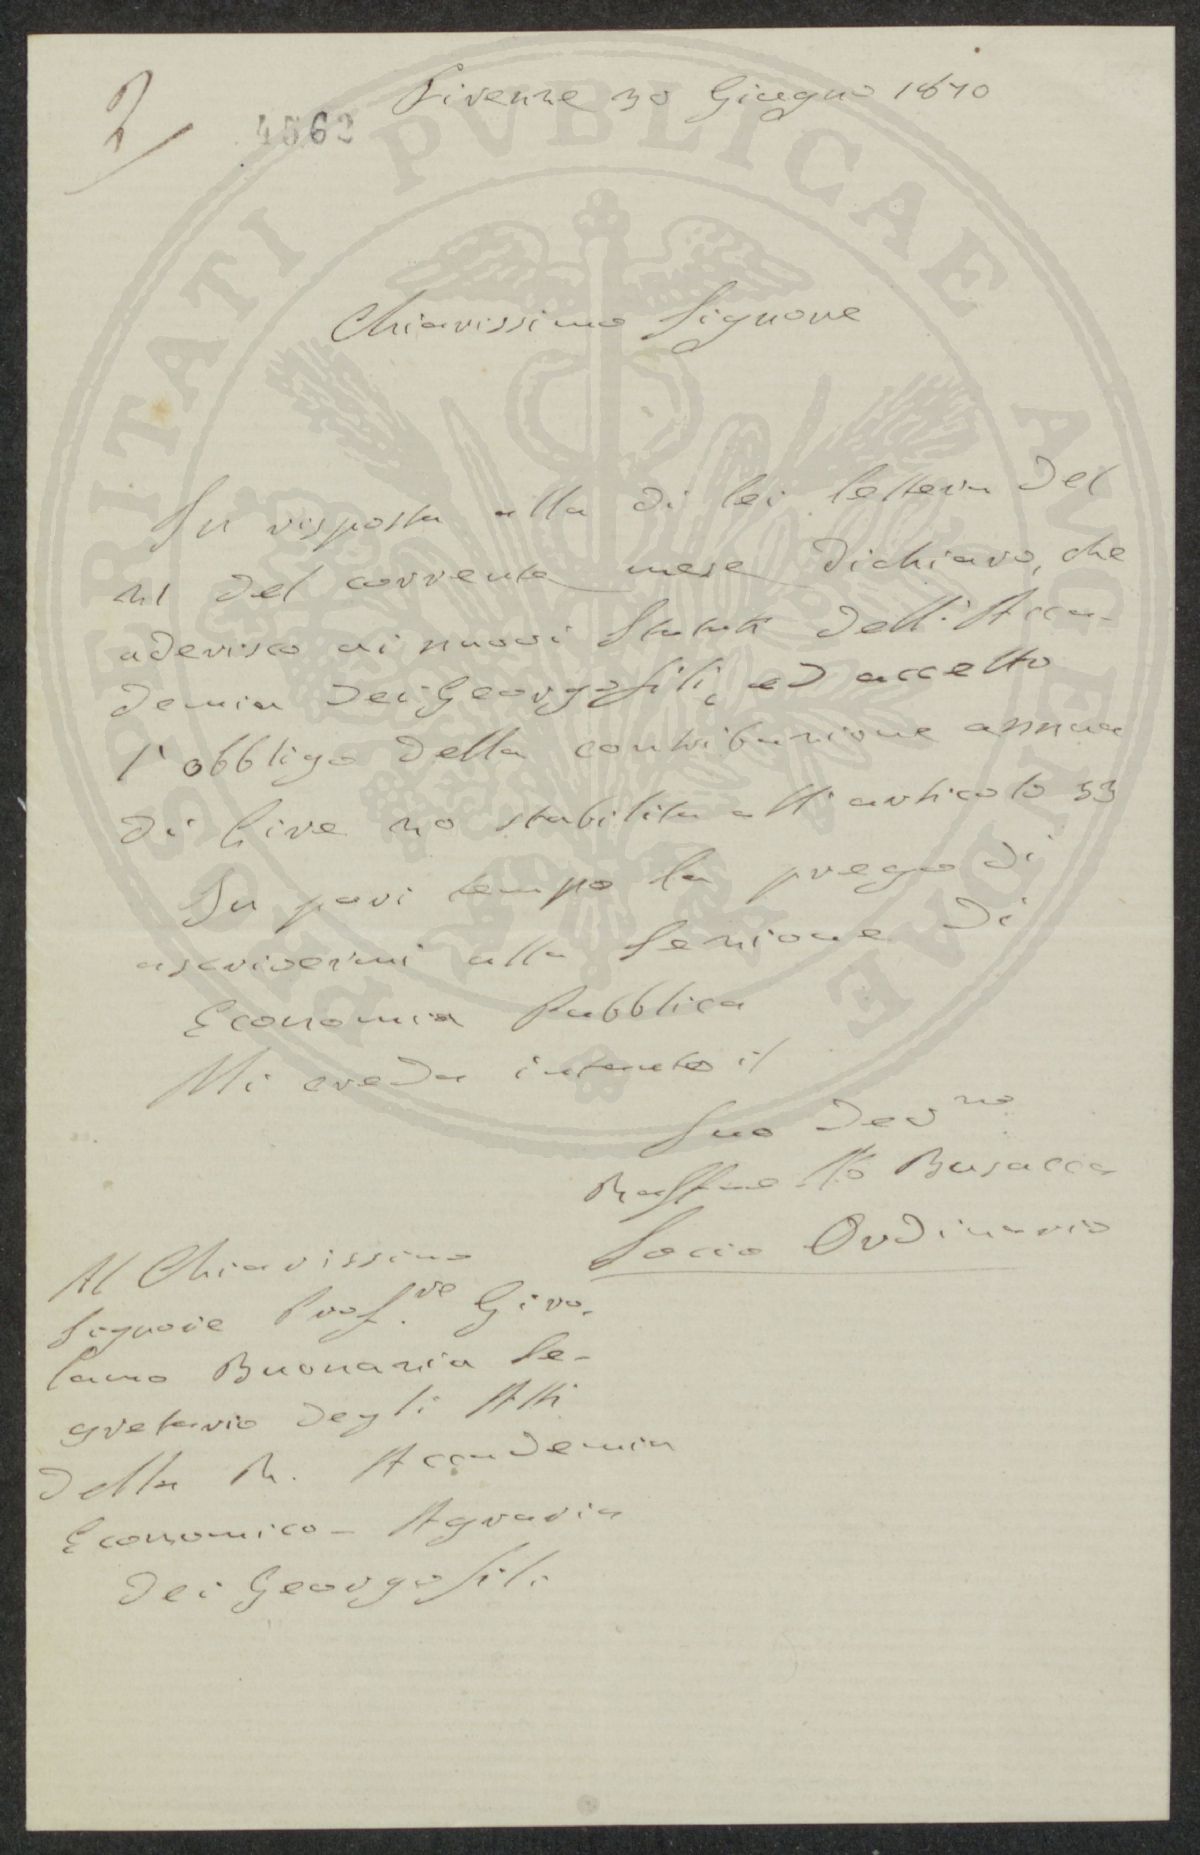 4562
Firenze 30 Giugno 1870
Chiarissimo Signore
In risposta alla di lei lettera del
21 del corrente mese dichiaro, che
aderisco ai nuovi Statuti dell'Acca-
demia dei Georgofili, ed accetto
l'obbligo della contribuzione annua
di lire 20 stabilita all'articolo 33
In pari tempo la prego di
ascrivermi alla Sezione di
Economia Pubblica
Mi creda intanto il
Suo Dev.mo
Raffaello Busacca
Socio Ordinario
Al Chiarissimo
Signore Prof.re Giro-
lamo Buonazia Se-
gretario degli Atti
della R. Accademia
Economico-Agraria
dei Georgofili
PROSPERITATI PVBLICAE AVGENDAE